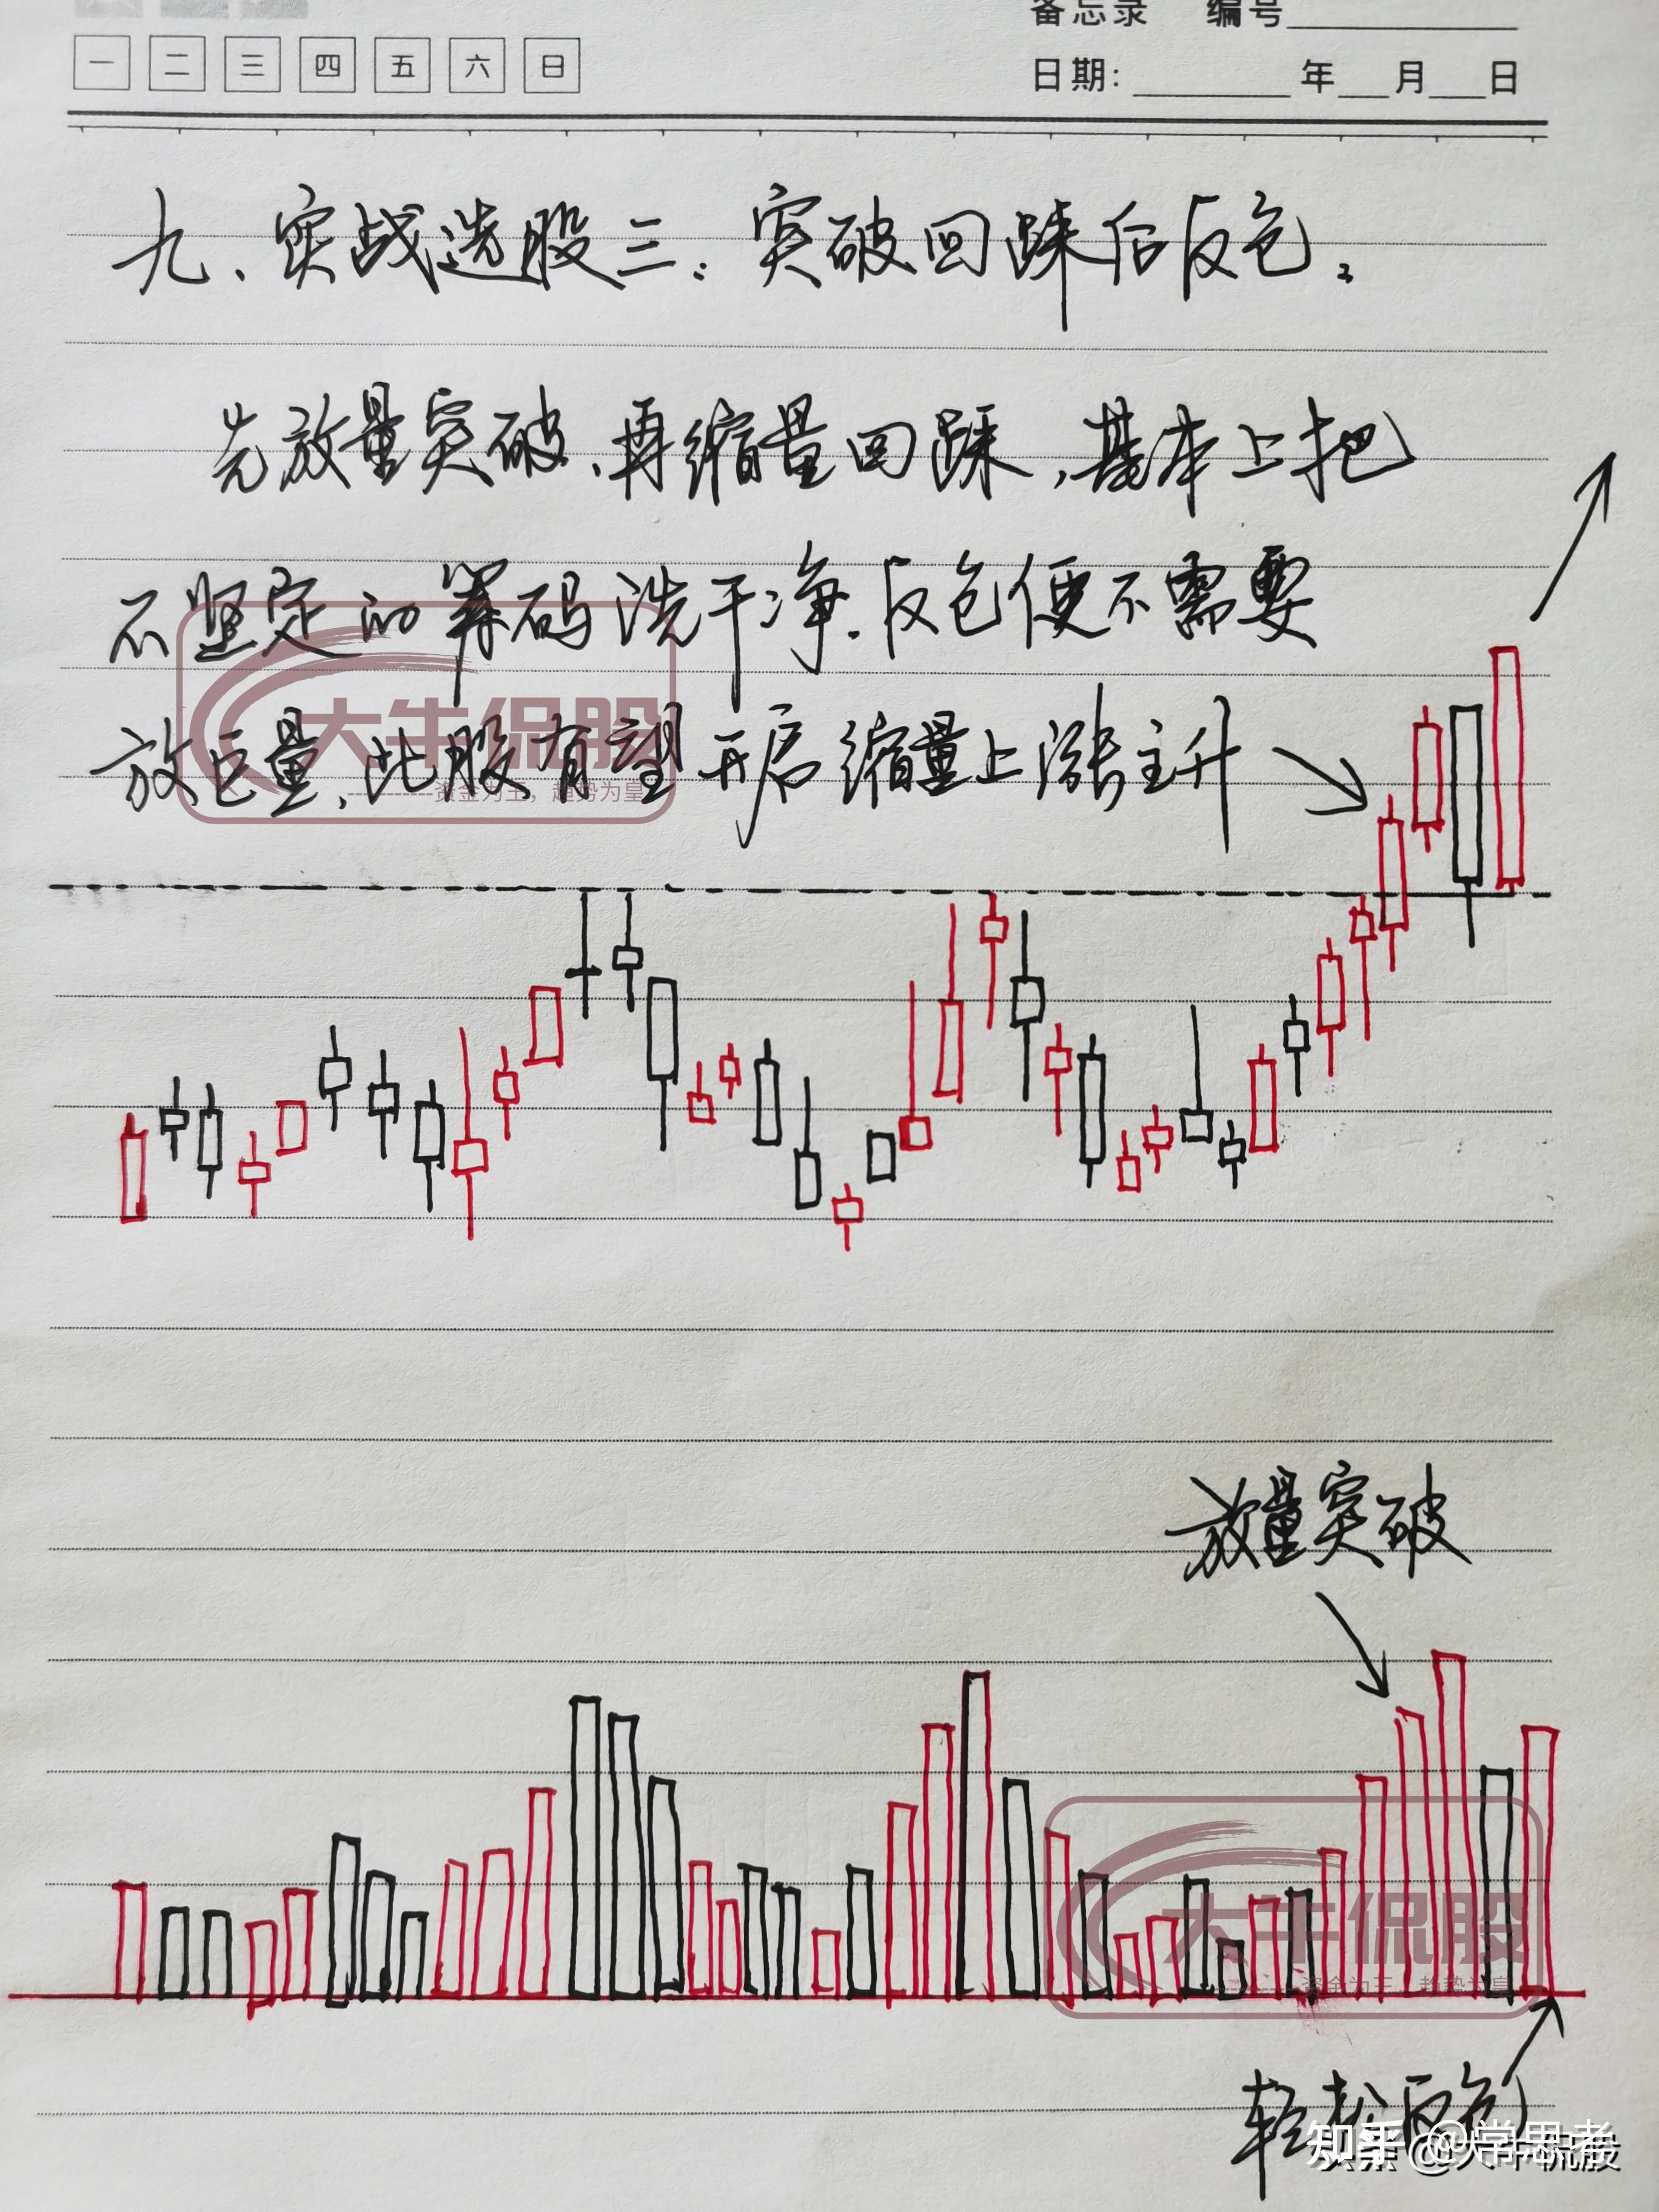 备忘录 编号
一 二 三 四 五 六 日
日期: 年 月 日
九、实战选股三：突破回踩后反包。
先放量突破、再缩量回踩，基本上把
不坚定的筹码洗干净.反包便不需要
放巨量，此股有望开启缩量上涨主升
大牛侃股
资金为王，趋势为皇
放量突破
大牛侃股
资金为王，趋势为皇
轻松反包
知乎 @学思者
头条 @大牛侃股